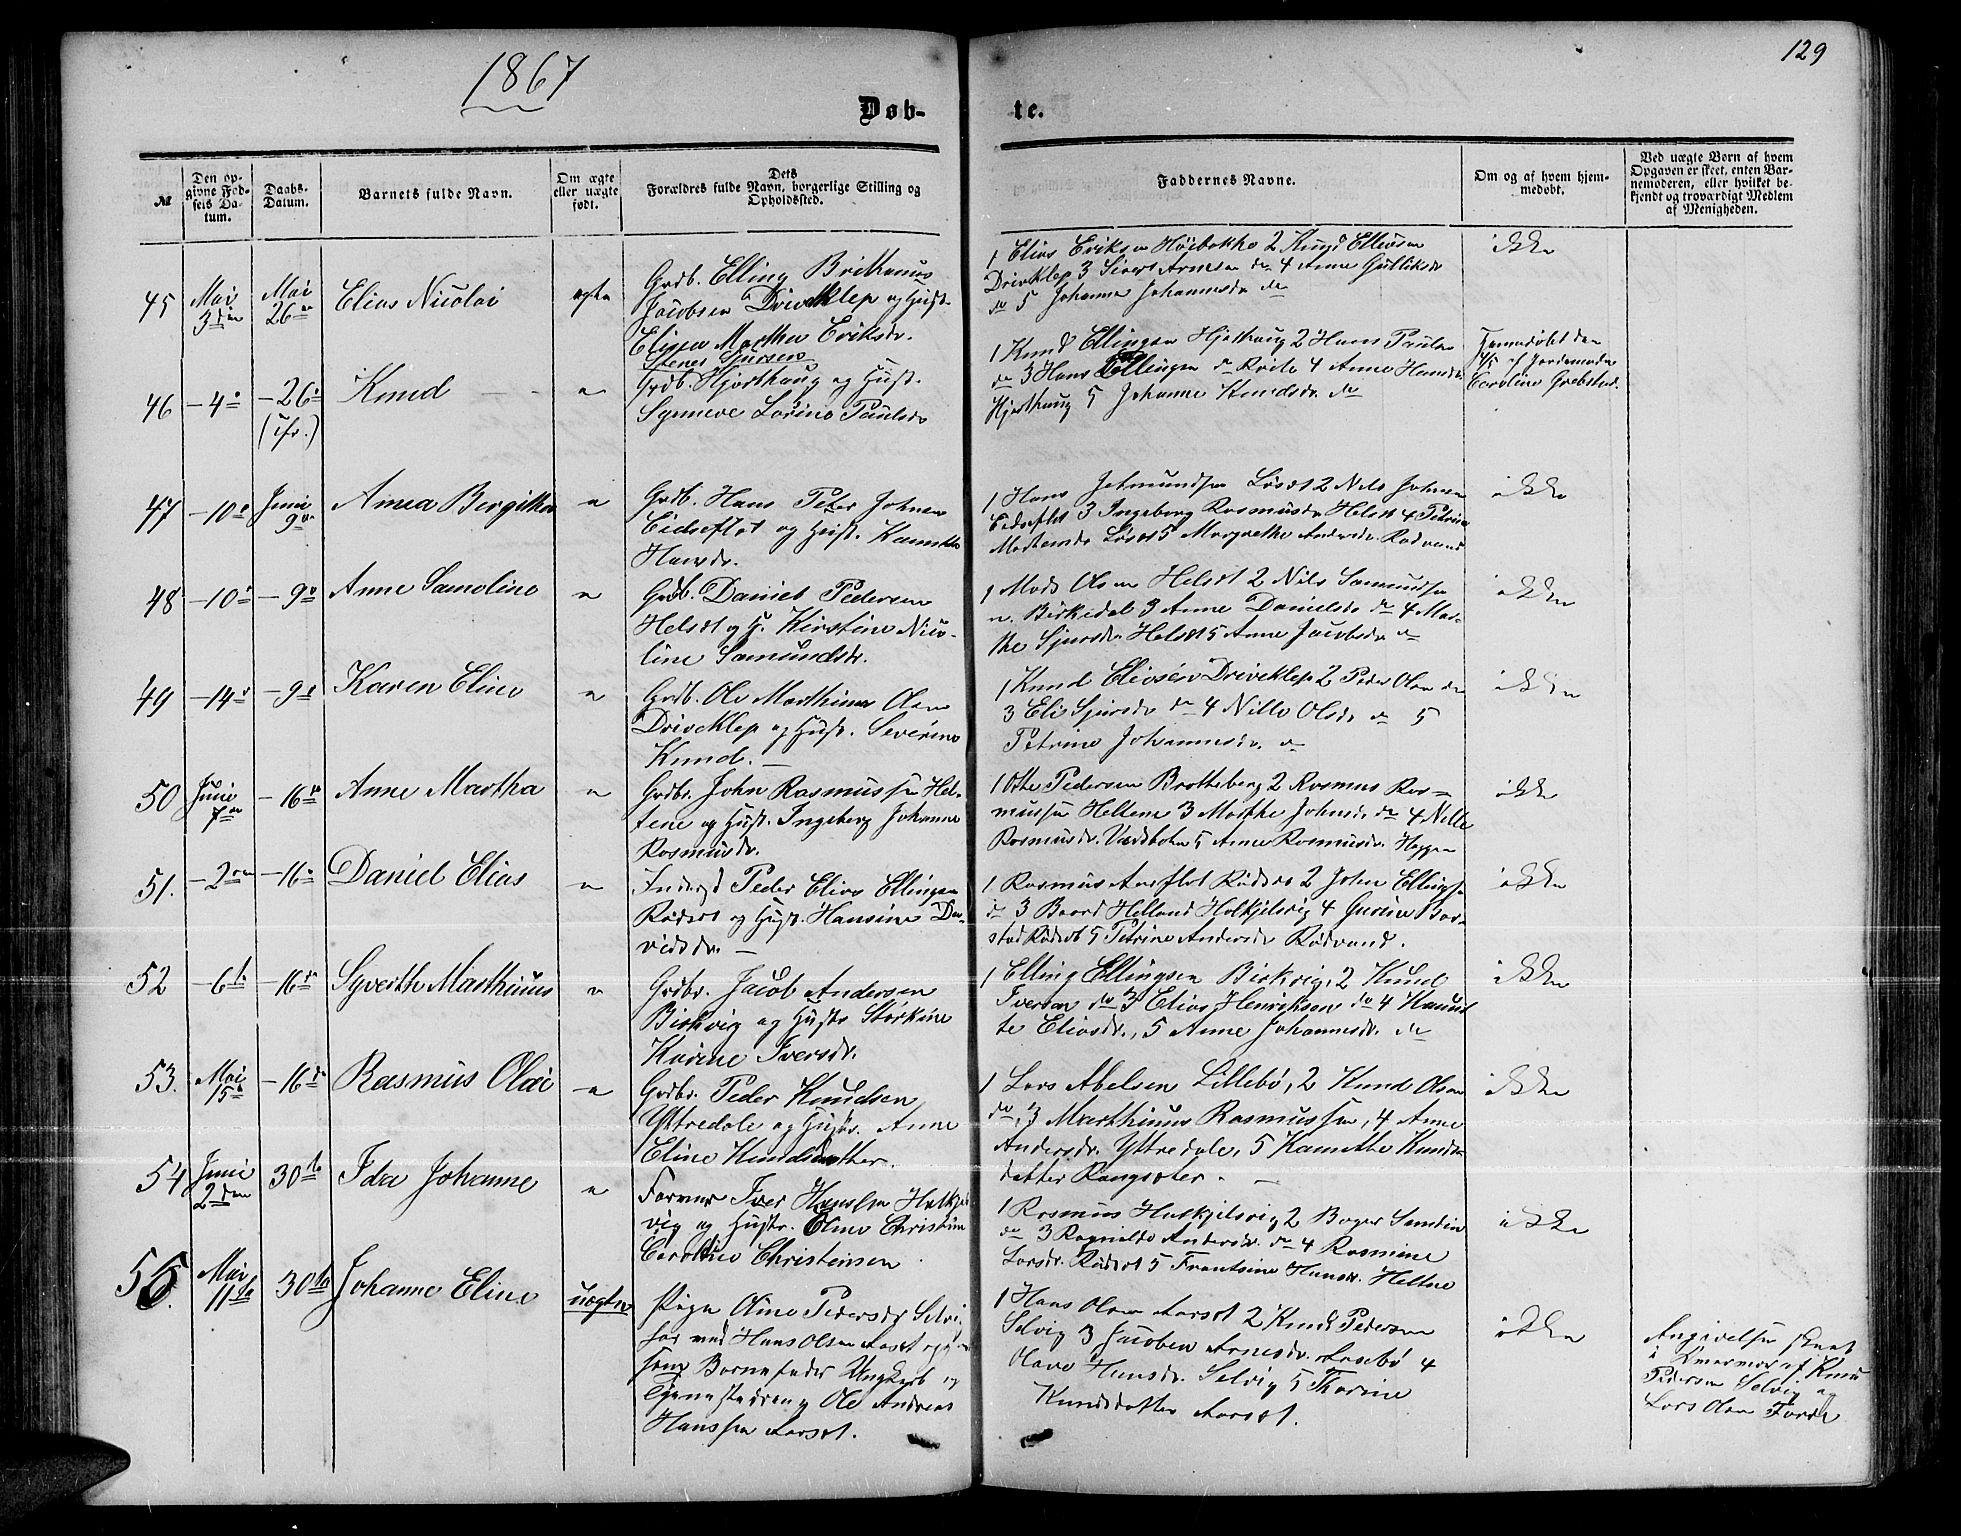 1867
129
Døb-
te.
№
Den op-
givne Fød-
sels Da-
tum.
Daabs-
Datum.
Barnets fulde Navn.
Om ægte
eller uægte
født.
Dets
Forældres fulde Navn, borgerlige Stilling og
Opholdssted.
Faddernes Navne.
Om og af hvem hjem-
medøbt.
Ved uægte Børn af hvem
Opgaven er skeet, enten Bar-
nemoderen, eller hvilket be-
kjendt og troværdigt Medlem
af Menigheden.
45
Mai
3den
Mai
26de
Elias Nicolai
ægte
Grdb. Elling Brithanus
Jacobsen Driveklep og Hust.
Elisen Marthe Eriksdr.
1 Elias Eriksen 2 Knud Eliasen
Driveklep 3 Sivert Arnesen do 4 Anne Gulliksdr
do 5 Johanne Johannesdr do
ikke
46
- 4de
- 26de
Knud
Grdb. Hjorthaug og Hust.
Synneve Lovine Paulsdr
1 Knud Ellingsen Hjorthaug 2 Hans Paulsen
do 3 Hans Ellingsen 4 Anne Hansdr
Hjorthaug 5 Johanne Knudsdr do
Hjemmedøbt den
af Jordemoder
Caroline Grebstad
47
- 10de
Juni
9de
Anna Bergitha
Grdb. Hans Peter Johnsen
Eidseflot og Hust.
Hansdr.
1 Hans Jetmundsen 2 Nils Johnsen
Eidseflot 3 Ingeborg Rasmusdr 4 Petrine
5 Margrethe Andersdr Rødvand
ikke
48
- 10de
- 9de
Anne Samoline
Grdb. Daniel Pedersen
Helset og H. Kirstine Nico-
line Samundsdr.
1 Mads Olsen Helset 2 Nils Samundsen
Birkedal 3 Anne Danielsdr do 4 Mar-
the Sjursdr Helset 5 Anne Jacobsdr do
ikke
49
- 14de
- 9de
Karen Eline
Grdb. Ole Marthinus Olsen
Driveklep og Hust. Severine
Knud. -
1 Knud Eliasen Driveklep 2 Peder Olsen do
3 Eli Sjursdr do 4 Nille Olsdr do 5
Petrine Johannesdr. do
ikke
50
Juni
7de
- 16de
Anne Martha
Grdbr. John Rasmussen Hel-
tene og Hust. Ingeborg Johanne
Rasmusdr.
1 Otte Pedersen Brotteberg 2 Rasmus Ras-
mussen Heltene 3 Marthe Johnsdr do 4 Nille
Rasmusdr. 5 Anne Rasmusdr.
ikke
51.
- 2den
- 16de
Daniel Elias
Peder Elias Ellingsen
Rødset og Hust. Hansine Da-
vidsdr. -
1 Rasmus Aarflot Rødset 2 John Ellingsen
do 3 Baard Helland Holkjelsvig 4 Gurine
Rødset 5 Petrine Andersdr Rødvand.
ikke
52
- 6te
- 16de
Syverth Marthinus
Grdbr. Jacob Andersen
Birkvig og Hustr Størkine
Karine Iversdr.
1 Elling Ellingsen Birkvig, 2 Knud
Iversen do 3 Elias Henriksen do 4
Eliasdr., 5 Anne Johannesdr. do
ikke
53.
Mai
15de
- 16de
Rasmus Olai
Grdbr. Peder Knudsen
Yttredale og Hustr. Anne
Eline Knudsdatter.
1 Lars Abelsen Lillebø, 2 Knud Olsen
do, 3 Marthinus Rasmussen, 4 Anne
Andersdr. Yttredale, 5 Knuds-
datter Rangsæter. -
ikke
54
Juni
2den
30te
Ida Johanne
Iver Hanssen Holkjels-
vig og Hustr. Oline Christine
Caroline Christensen.
1 Rasmus Holkjelsvig 2
do 3 Ragnilde Andersdr. do 4 Rasmine
Larsdr. Rødset 5 Frantsine Hansdr. Heltne
ikke
55.
Mai
11te
30te
Johanne Eline
uægte
Pige Oline Pedersdr Selvig
har med Hans Olsen Aarset
som Barnefader Ungkarl og
Ole Andreas
Hanssen Aarset.
1 Hans Olsen Aarset 2 Knud Pedersen
Selvig 3 Jacobea Arnesdr. Aasebø 4
Olave Hansdr. Selvig 5 Thorine
Knudsdatter Aarset.
ikke
Angivelsen skeet
i af Knud
Pedersen Selvig og
Lars Olsen Førde